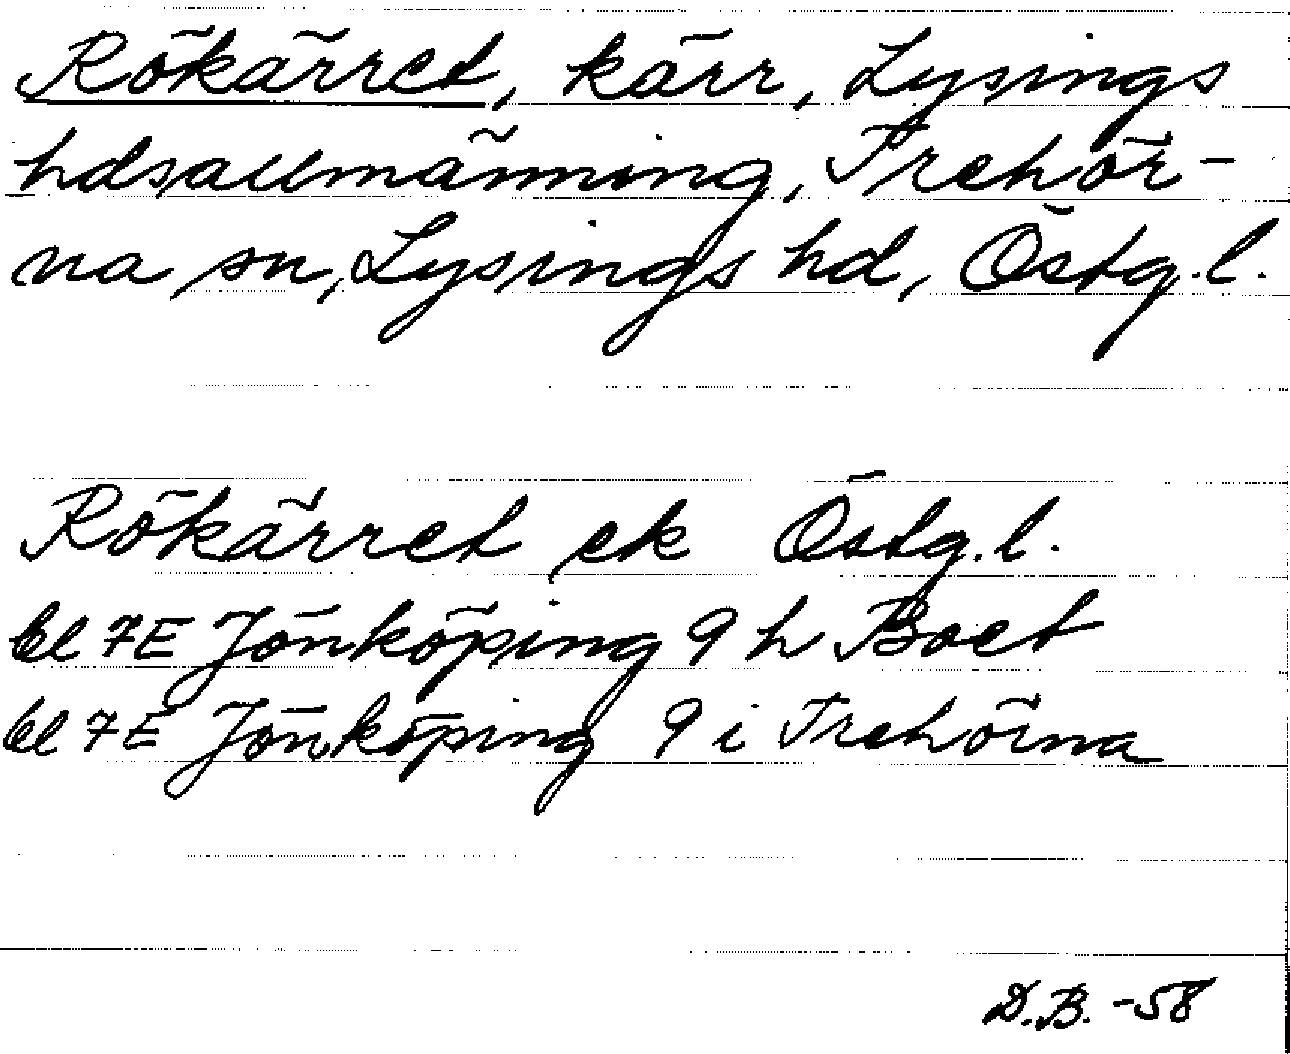 Rökärret, kärr, Lysings
hdsallmänning, Trehör-
na sn, Lysings hd, Östg.l.
Rökärret ek Östg.l.
bl 7E Jönköping 9 h Boet
bl 7E Jönköping 9 i Trehörna
D.B. -58